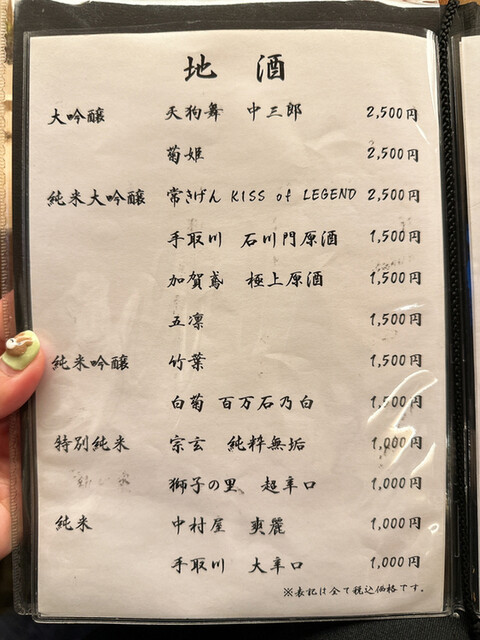 地酒
大吟醸 天狗舞 中三郎 2,500円
菊姫 2,500円
純米大吟醸 常きげん KISS of LEGEND 2,500円
手取川 石川門原酒 1,500円
加賀鳶 極上原酒 1,500円
五凛 1,500円
純米吟醸 竹葉 1,500円
白菊 百万石乃白 1,500円
特別純米 宗玄 純粋無垢 1,000円
獅子の里 超辛口 1,000円
純米 中村屋 爽麗 1,000円
手取川 大辛口 1,000円
※表記は全て税込価格です。